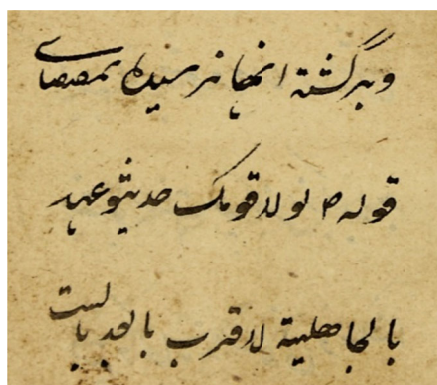 وبرگشته انجا نرسیده بمقتضای
قوله ص لولا قومک حدیثو عهد
بالجاهلیة لاقرب بالعد بالبیت